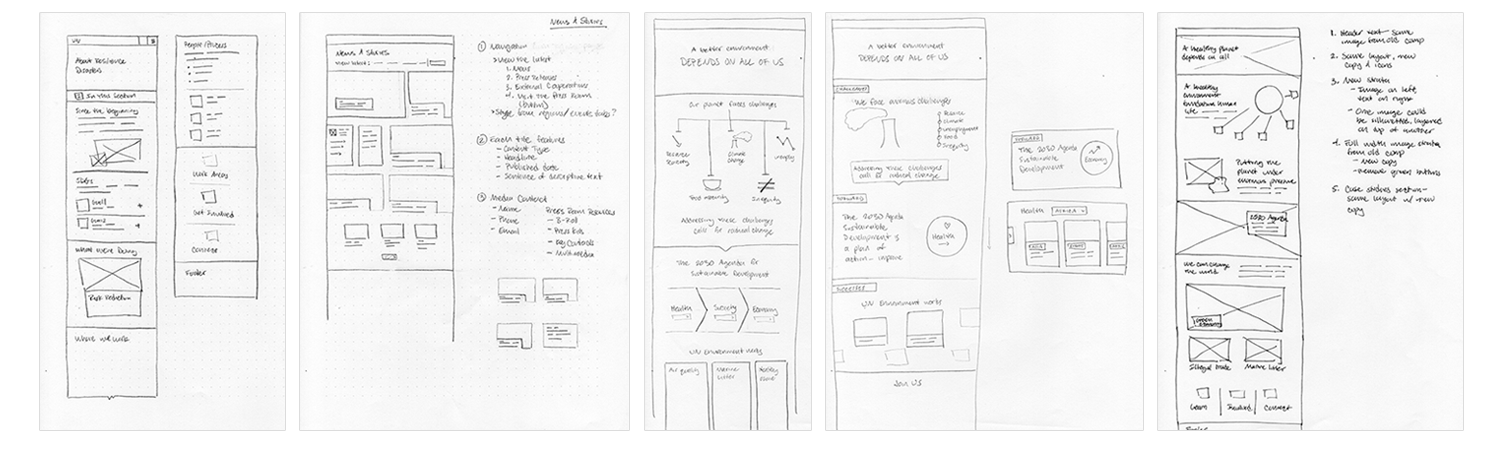 UN
About Resilience
Disasters
In this Section
Since the beginning
Staff
What we're doing
Risk Reduction
Where we work
Work Areas
Get Involved
Connect
Footer
News & Stories
News & Stories
View latest:
① Navigation
*View the latest
1. News
2. Press Releases
3. External Cooperation
4. Visit the Press Room
(button)
② Each tile features
- Content Type
- Headline
- Published date
- Sentence of descriptive text
③ Media Contact
- Name
- Phone
- Email
Press Room Resources
- B-Roll
- Press Kits
- Key Contacts
- Multimedia
A better environment
DEPENDS ON ALL OF US
Our planet faces challenges
Climate
change
Inequality
Addressing these challenges
calls for radical change
The 2030 Agenda for
Sustainable Development
Health
Society
Economy
UN Environment works
Air quality
Marine
Litter
A better environment
DEPENDS ON ALL OF US
CHALLENGES
We face enormous challenges
Climate
Unemployment
Food
Inequality
Addressing these challenges
call for radical change
The 2030 Agenda
Sustainable
Development is
a plan of
action - improve
Health
UN Environment works
Join US
The 2030 Agenda
Sustainable
Development
Economy
Health
A healthy planet
depends on all
A healthy
environment
Putting the
planet under
enormous pressure
2030 Agenda
We can change
the world
Green
Economy
Illegal Trade
Marine Litter
Learn
Involved
Connect
Footer
1. Header text - same
image from old comp
2. Same layout, new
copy & icons
- Image on left,
text on right
- One image could
be silhouettes, layered
on top of another
4. Full width image
from old comp
- new copy
- remove green buttons
5. Case studies section -
same layout w/ new
copy